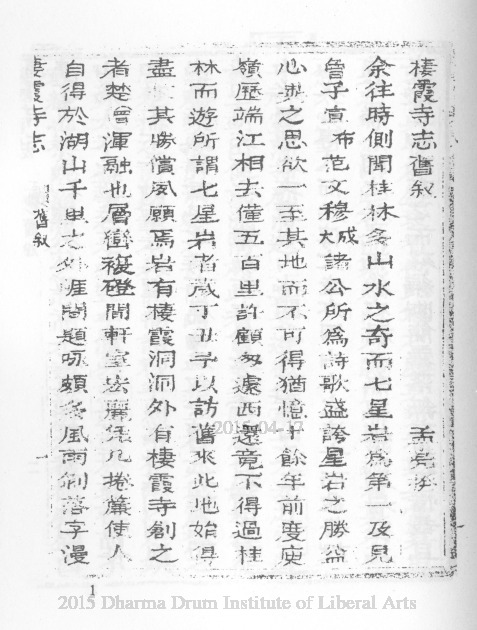 棲霞寺志舊叙
孟亮揆
余往時側聞桂林多山水之奇而七星岩為第一及見
曾子宣布范文穆成大諸公所為詩歌盛誇星岩之勝益
心興之思欲一至其地而不可得猶憶十餘年前度庾
嶺歷端江相去僅五百里許顧匆遽西還竟不得過桂
林而遊所謂七星岩者歲丁丑予以訪舊來此地始得
盡其勝償夙願焉岩有棲霞洞洞外有棲霞寺創之
者楚僧渾融也層巒複磴開軒室去麗凭几捲簾使人
自得於湖山千里之外涯間題咏頗多風雨剝落字漫
棲霞寺志
舊叙
一
2015-04-17
1
2015 Dharma Drum Institute of Liberal Arts